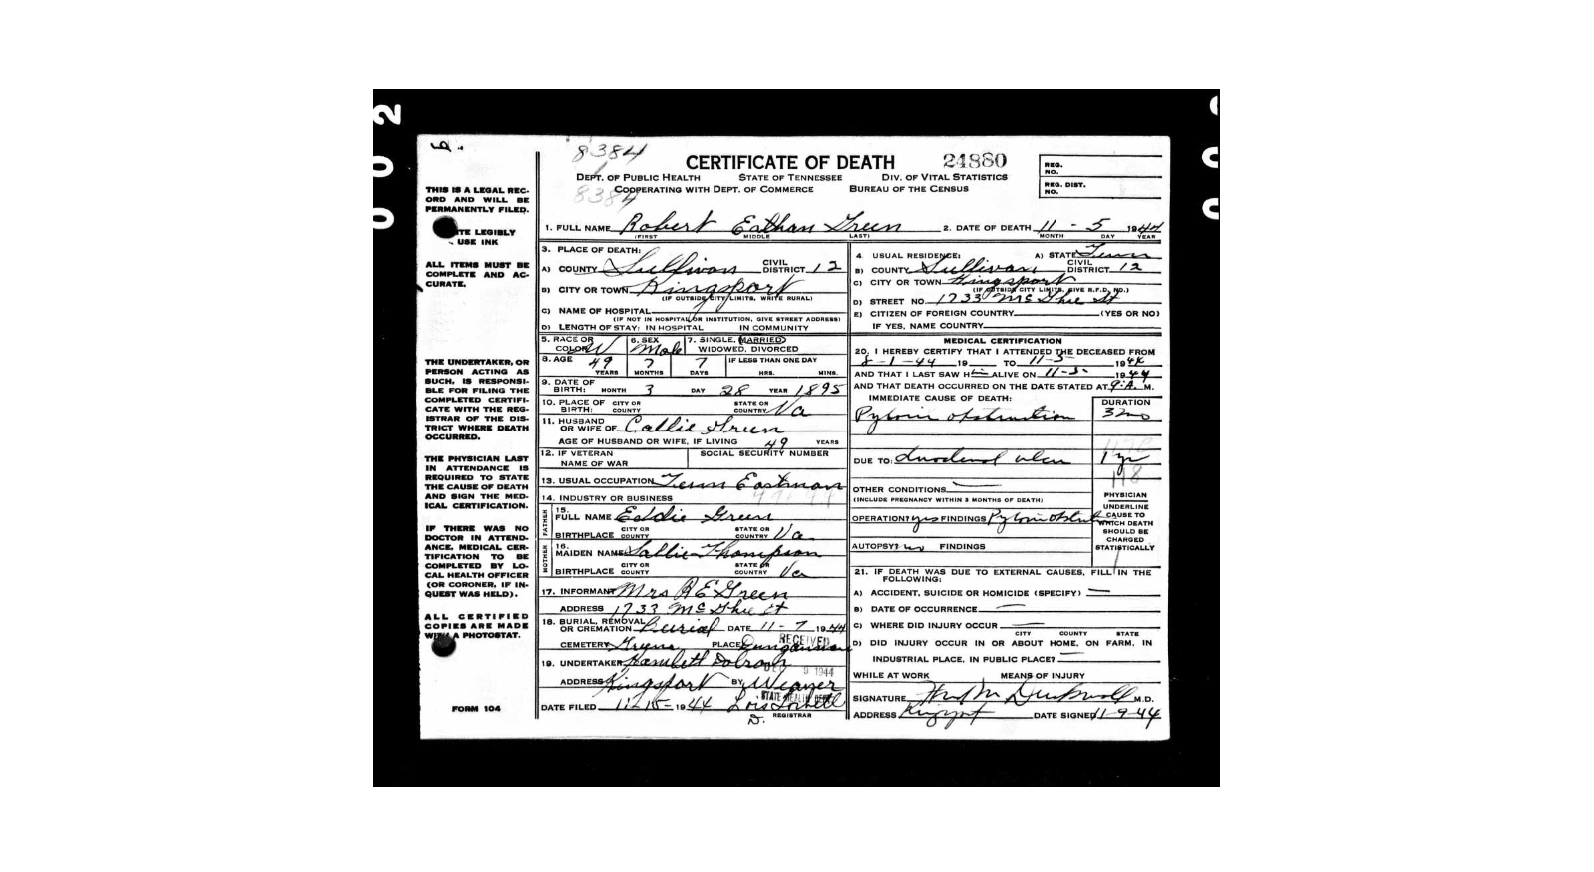 002
00
8384
1
8384
CERTIFICATE OF DEATH 24880
DEPT. OF PUBLIC HEALTH STATE OF TENNESSEE DIV. OF VITAL STATISTICS
COOPERATING WITH DEPT. OF COMMERCE BUREAU OF THE CENSUS
REG. NO.
REG. DIST. NO.
THIS IS A LEGAL REC-
ORD AND WILL BE
PERMANENTLY FILED.
LEGIBLY
USE INK
ALL ITEMS MUST BE
COMPLETE AND AC-
CURATE.
THE UNDERTAKER, OR
PERSON ACTING AS
SUCH, IS RESPONSI-
BLE FOR FILING THE
COMPLETED CERTIFI-
CATE WITH THE REG-
ISTRAR OF THE DIS-
TRICT WHERE DEATH
OCCURRED.
THE PHYSICIAN LAST
IN ATTENDANCE IS
REQUIRED TO STATE
THE CAUSE OF DEATH
AND SIGN THE MED-
ICAL CERTIFICATION.
IF THERE WAS NO
DOCTOR IN ATTEND-
ANCE, MEDICAL CER-
TIFICATION TO BE
COMPLETED BY LO-
CAL HEALTH OFFICER
(OR CORONER, IF IN-
QUEST WAS HELD).
ALL CERTIFIED
COPIES ARE MADE
WITH A PHOTOSTAT.
FORM 104
1. FULL NAME Robert Eathan Green 2. DATE OF DEATH 11 - 5 1944
(FIRST) MIDDLE LAST) MONTH DAY YEAR
3. PLACE OF DEATH:
A) COUNTY Sullivan CIVIL DISTRICT 12
B) CITY OR TOWN Kingsport
(IF OUTSIDE CITY LIMITS, WRITE RURAL)
C) NAME OF HOSPITAL
(IF NOT IN HOSPITAL OR INSTITUTION, GIVE STREET ADDRESS)
D) LENGTH OF STAY: IN HOSPITAL IN COMMUNITY
4. USUAL RESIDENCE: A) STATE Tenn
B) COUNTY Sullivan CIVIL DISTRICT 12
C) CITY OR TOWN Kingsport
(IF OUTSIDE CITY LIMITS, GIVE R.F.D. NO.)
D) STREET NO. 1733 McGhie St
E) CITIZEN OF FOREIGN COUNTRY (YES OR NO)
IF YES, NAME COUNTRY
5. RACE OR COLOR W 6. SEX Male 7. SINGLE, MARRIED, WIDOWED, DIVORCED
8. AGE 49 YEARS 7 MONTHS 7 DAYS IF LESS THAN ONE DAY HRS. MINS.
9. DATE OF BIRTH: MONTH 3 DAY 28 YEAR 1895
10. PLACE OF BIRTH: CITY OR COUNTY STATE OR COUNTRY Va
11. HUSBAND OR WIFE OF Callie Green
AGE OF HUSBAND OR WIFE, IF LIVING 49 YEARS
12. IF VETERAN NAME OF WAR SOCIAL SECURITY NUMBER
13. USUAL OCCUPATION Tenn Eastman
14. INDUSTRY OR BUSINESS
FATHER
15. FULL NAME Eddie Green
BIRTHPLACE CITY OR COUNTY STATE OR COUNTRY Va
MOTHER
16. MAIDEN NAME Sallie Thompson
BIRTHPLACE CITY OR COUNTY STATE OR COUNTRY Va
17. INFORMANT Mrs R E Green
ADDRESS 1733 McGhie St
18. BURIAL, REMOVAL OR CREMATION Burial DATE 11 - 7 1944
CEMETERY Greene PLACE Dungannon
RECEIVED
9 1944
STATE HEALTH DEPT
19. UNDERTAKER Hamlett Dobson
ADDRESS Kingsport BY Weaver
DATE FILED 11-15-1944 Lois
D. REGISTRAR
MEDICAL CERTIFICATION
20. I HEREBY CERTIFY THAT I ATTENDED THE DECEASED FROM
8-1-44 19 TO 11-5 1944
AND THAT I LAST SAW HIM ALIVE ON 11-5 1944
AND THAT DEATH OCCURRED ON THE DATE STATED AT 9:A.M.
IMMEDIATE CAUSE OF DEATH: DURATION
Pyloric obstruction 3 mo
DUE TO: duodenal ulcer 1 yr
118
OTHER CONDITIONS
(INCLUDE PREGNANCY WITHIN 3 MONTHS OF DEATH)
OPERATION? yes FINDINGS Pyloric obstruct
AUTOPSY? no FINDINGS
PHYSICIAN
UNDERLINE
CAUSE TO
WHICH DEATH
SHOULD BE
CHARGED
STATISTICALLY
21. IF DEATH WAS DUE TO EXTERNAL CAUSES, FILL IN THE FOLLOWING:
A) ACCIDENT, SUICIDE OR HOMICIDE (SPECIFY)
B) DATE OF OCCURRENCE
C) WHERE DID INJURY OCCUR
CITY COUNTY STATE
D) DID INJURY OCCUR IN OR ABOUT HOME, ON FARM, IN
INDUSTRIAL PLACE, IN PUBLIC PLACE?
WHILE AT WORK MEANS OF INJURY
SIGNATURE M.D.
ADDRESS Kingsport DATE SIGNED 11-9-44